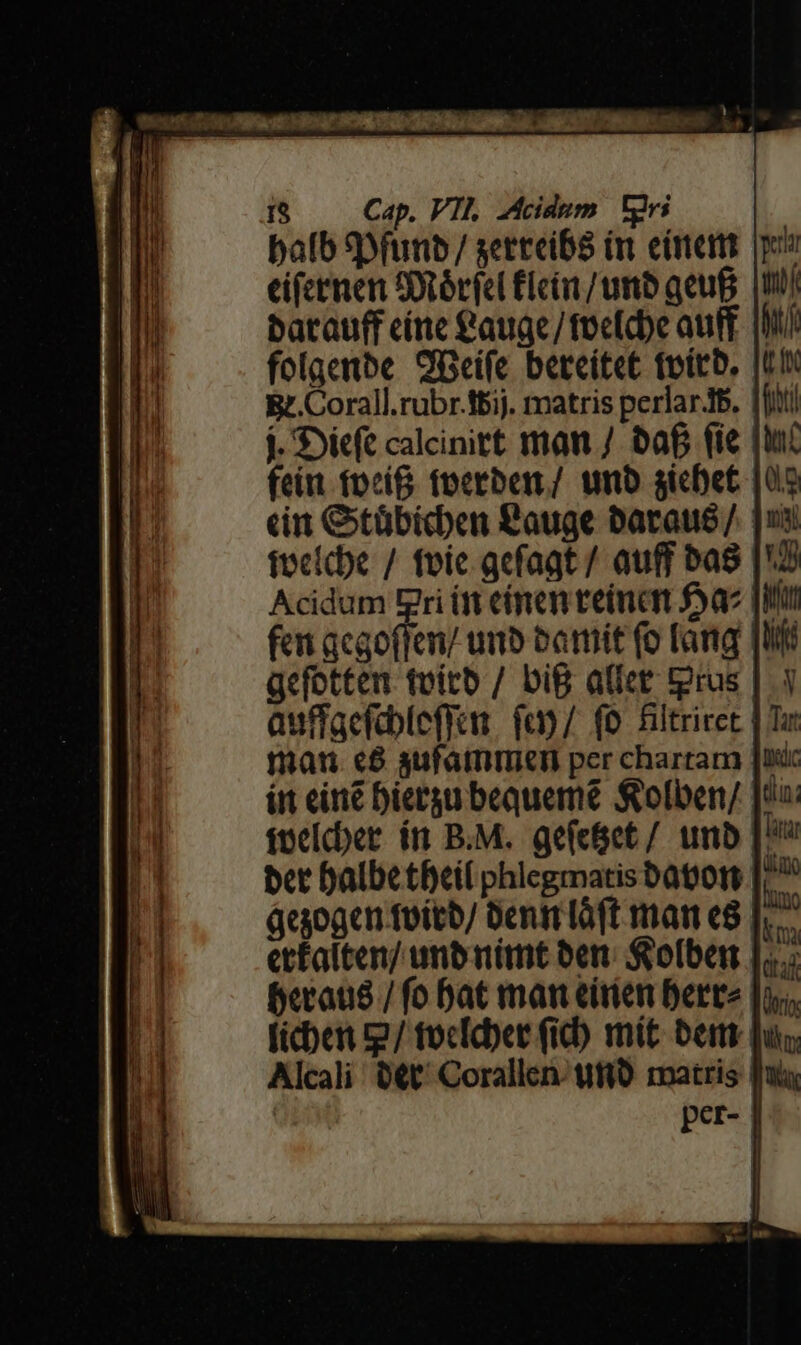 18 Cap. VII. Acidum 🜿ri
halb Pfund / zerreibs in einem
eiſernen Moͤrſel klein / und geuß
darauff eine Lauge / welche auff
folgende Weiſe bereitet wird.
℞. Corall. rubr. ℔ij. matris perlar. ℔.
j. Dieſe calcinirt man / daß ſie
fein weiß werden / und ziehet
ein Stuͤbichen Lauge daraus /
welche / wie geſagt / auff das
Acidum 🜿ri in einen reinen Ha⸗
fen gegoſſen / und damit ſo lang
geſotten wird / biß aller 🜿rus
auffgeſchloſſen ſey / ſo filtriret
man es zuſammen per chartam
in einē hierzu bequemē Kolben /
welcher in B.M. geſetzet / und
der halbe theil phlegmatis davon
gezogen wird / denn laͤſt man es
erkalten / und nimt den Kolben
heraus / ſo hat man einen herr⸗
lichen 🜿 / welcher ſich mit dem
Alcali der Corallen und matris
per-